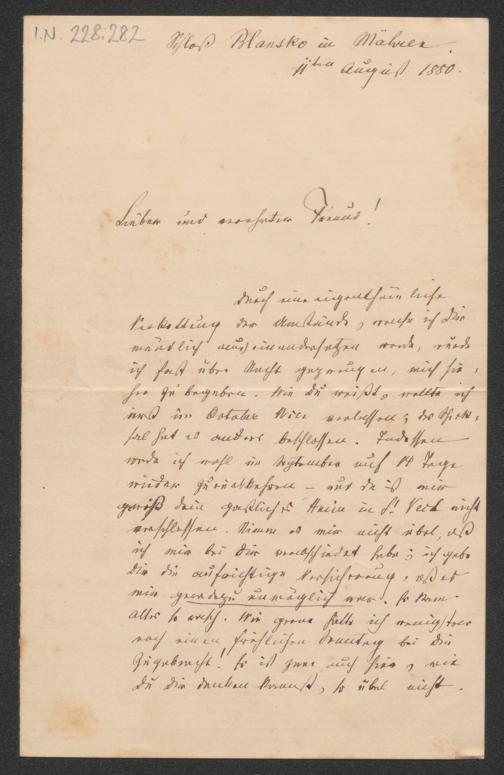 I.N. 228.282
Schloß Blansko in Mähren.
11ten August 1880.
Lieber und verehrter Freund!
Durch eine eigenthümliche
Verkettung der Umstände, welche ich Dir
mündlich auseinandersetzen werde, wurde
ich fast über Nacht gezwungen, mich hie-
her zu begeben. Wie Du weißt, wollte ich
erst im October Wien verlassen; das Schick-
sal hat es anders beschlossen. Indessen
werde ich wohl im September auf 14 Tage
wieder zurückkehren – und da ist mir
gewiß dein gastliches Heim in St. Veit nicht
verschlossen. Nimm es mir nicht übel, daß
ich mich bei Dir verabschiedet habe; ich gebe
Dir die aufrichtige Versicherung, daß es
mir geradezu unmöglich war. Es kam
alles so rasch. Wie gerne hätte ich wenigstens
noch einen fröhlichen Sonntag bei Dir
zugebracht! Es ist zwar auch hier, wie
Du Dir denken kannst, so übel nicht.